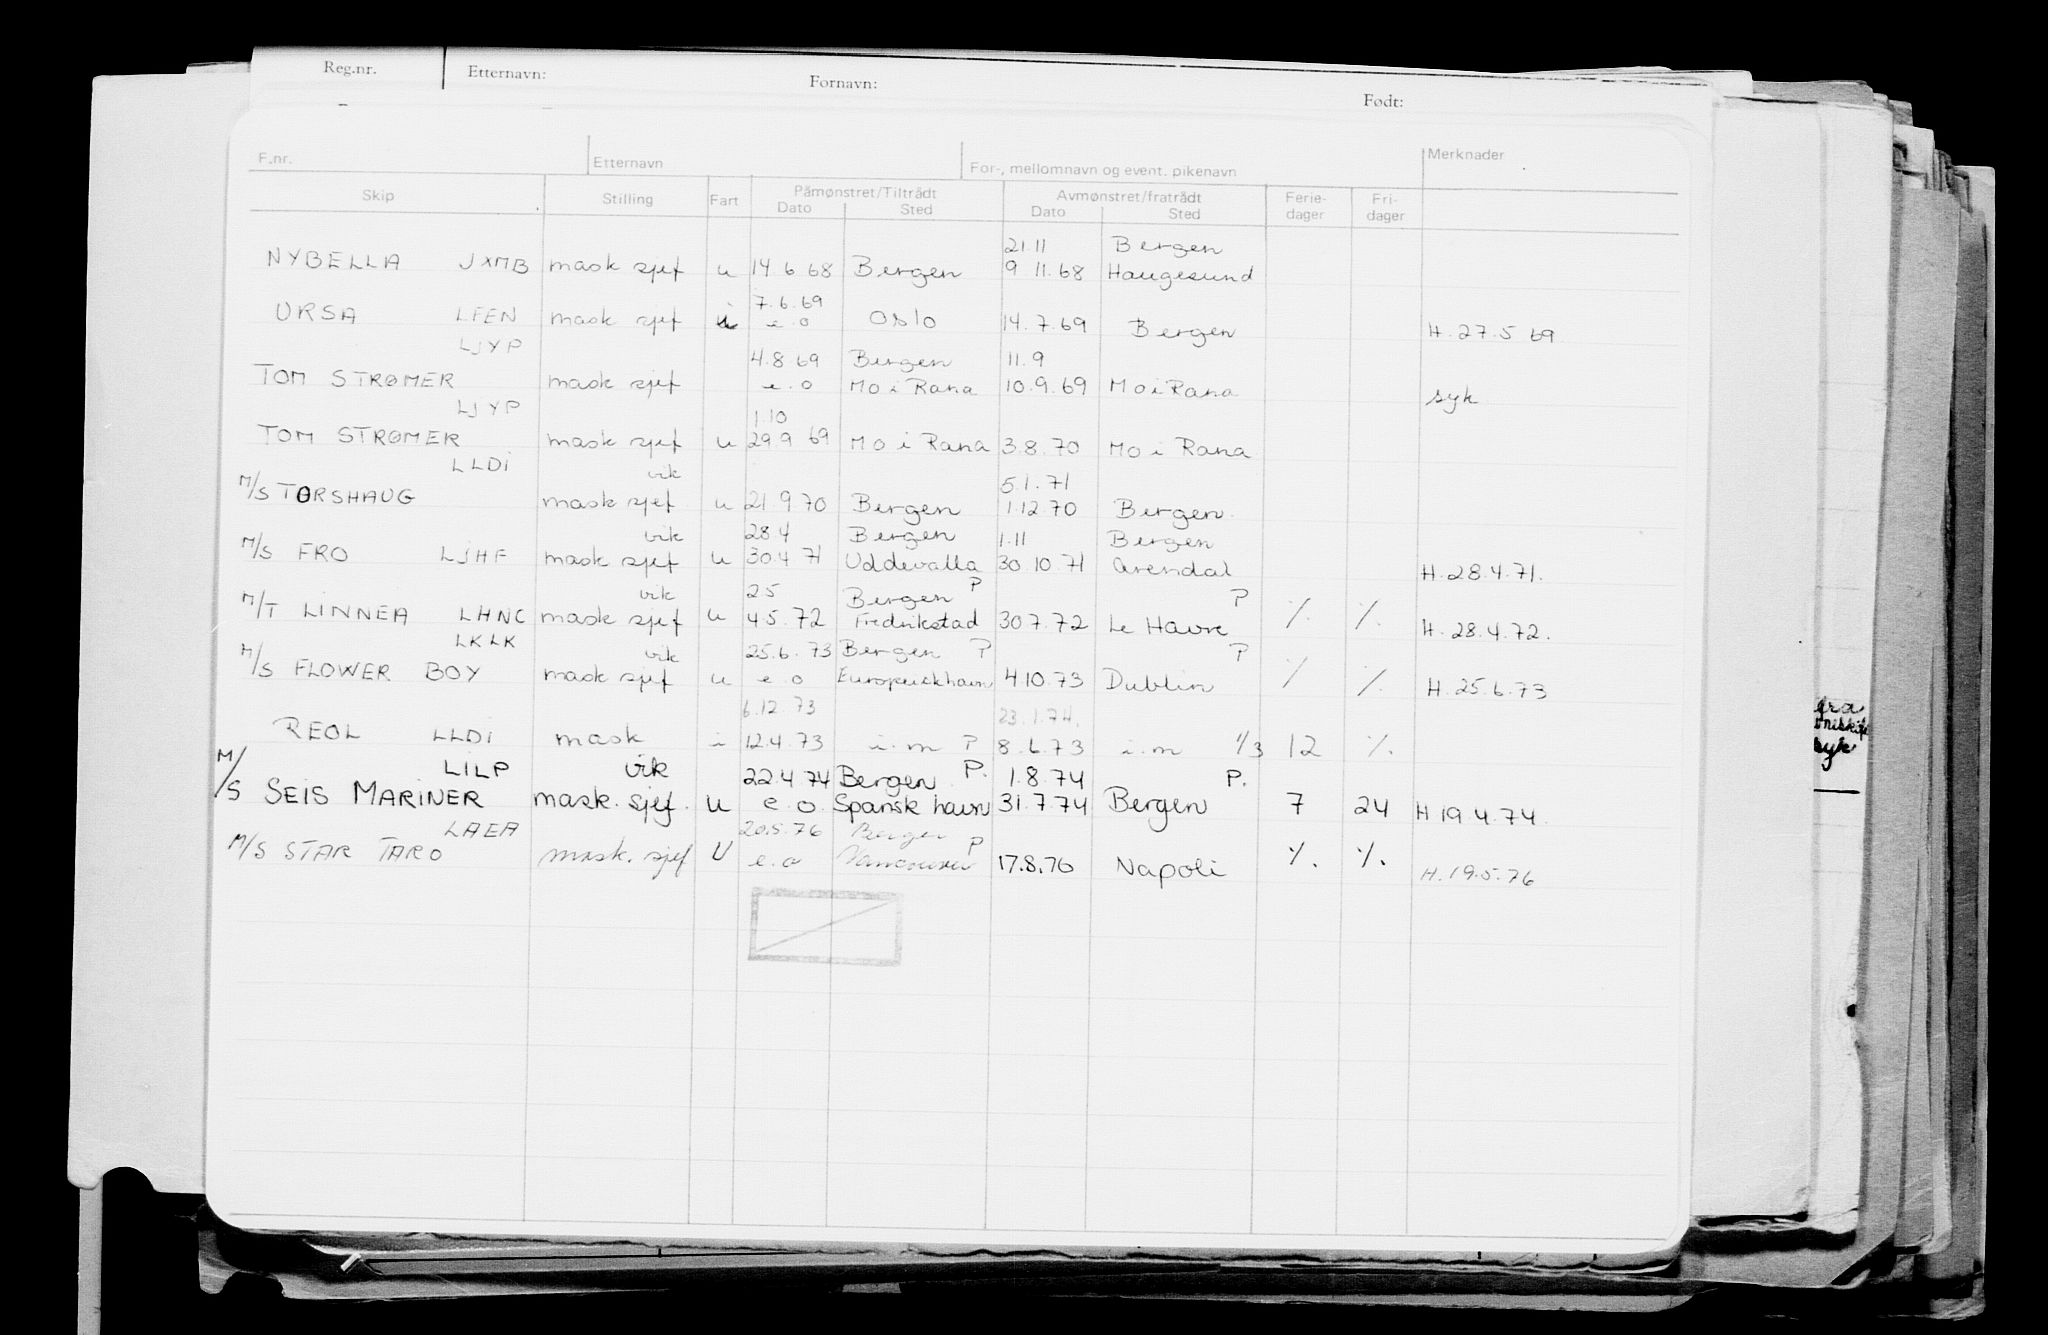 Reg.nr. Etternavn: Fornavn: Født:
F.nr. Etternavn For-, mellomnavn og event. pikenavn Merknader
Skip Stilling Fart Påmønstret/Tiltrådt Avmønstret/fratrådt Ferie- Fri-
Dato Sted Dato Sted dager dager
21.11 Bergen
NYBELLA JXMB mask sjef u 14.6 68 Bergen 9 11.68 Haugesund
7.6.69
URSA LFEN mask sjef i e.o Oslo 14.7.69 Bergen H.27.5 69
LJYP 4.8 69 Bergen 11.9
TOM STRØMER mask sjef e.o Mo i Rana 10.9.69 Mo i Rana syk
LJYP 1.10
TOM STRØMER mask sjef u 29.9 69 Mo i Rana 3.8.70 Mo i Rana
LLDI vik 5.1.71
M/S TORSHAUG mask sjef u 21 9 70 Bergen 1.12.70 Bergen.
vik 28.4 Bergen 1.11 Bergen
M/S FRO LJHF mask sjef u 30.4 71 Uddevalla 30.10.71 Arendal H.28.4.71.
vik 2.5 Bergen P P
M/T LINNEA LHNC mask sjef u 4.5.72 Fredrikstad 30.7.72 Le Havre ./. ./. H.28.4.72.
LKLK vik 25.6.73 Bergen P P
M/S FLOWER BOY mask sjef u e.o Europeisk havn 4.10.73 Dublin ./. ./. H.25.6.73
6.12.73 23.1.74.
REOL LLDI mask i 12.4.73 i.m P 8.6.73 i.m 1/3 12 ./.
LILP vik 22.4 74 Bergen P. 1.8.74 P.
M/S SEIS MARINER mask. sjef. u e.o. Spansk havn 31.7.74 Bergen 7 24 H 19.4.74.
LAEA 20.5.76 Bergen P
M/S STAR TARO mask. sjef U e.o Vancouver 17.8.76 Napoli ./. ./. H.19.5.76
syk